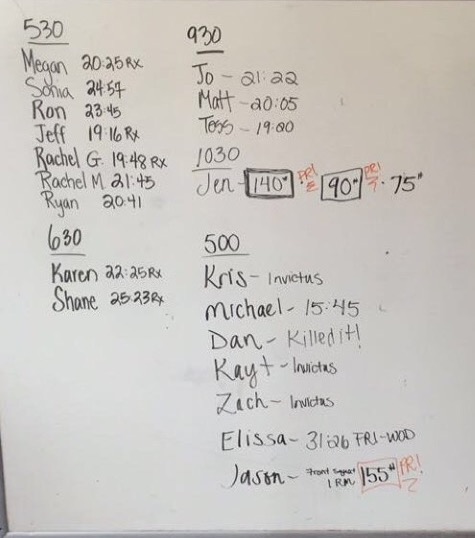 530
Megan 20:25 Rx
Sonia 24:54
Ron 23:45
Jeff 19:16 Rx
Rachel G. 19:48 Rx
Rachel M. 21:45
Ryan 20:41
630
Karen 22:25 Rx
Shane 25:23 Rx
930
Jo - 21:22
Matt - 20:05
Tess - 19:00
1030
Jen - 140# PR! 90# PR! 75#
500
Kris - Invictus
Michael - 15:45
Dan - Killed it!
Kayt - Invictus
Zach - Invictus
Elissa - 31:26 FRI-WOD
Jason - Front Squat 1 RM 155# PR!